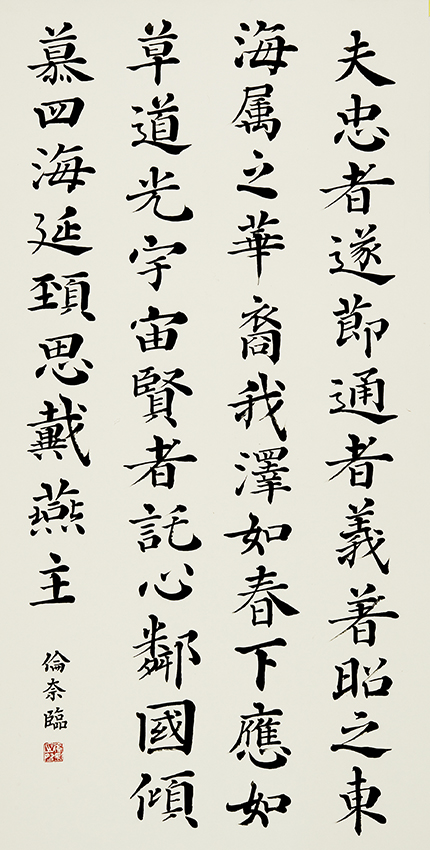 夫忠者遂節通者義著昭之東
海属之華裔我澤如春下應如
草道光宇宙賢者託心鄰國傾
慕四海延頸思戴燕主
倫奈臨